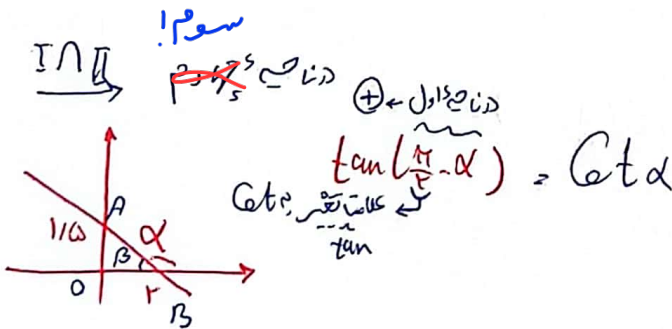 سوم!
I ∩ II
در ناحیه دوم
در ناحیه اول ← ⊕
tan(π/۲ - α) = Cot α
علامت تغییر
Cot
tan
A
۱/۵
α
β
O
۲
B